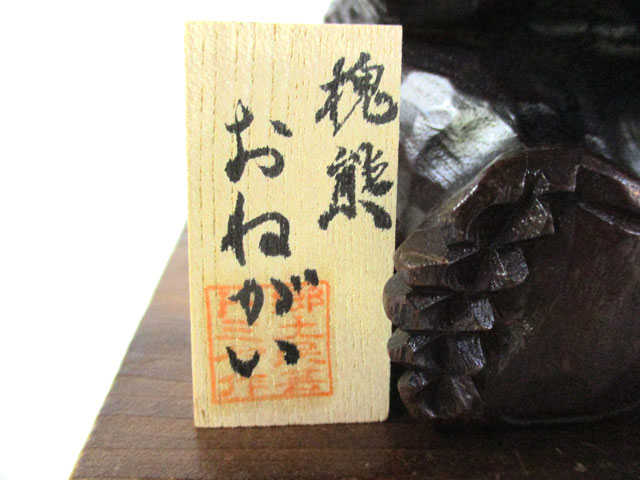 槐熊
おねがい